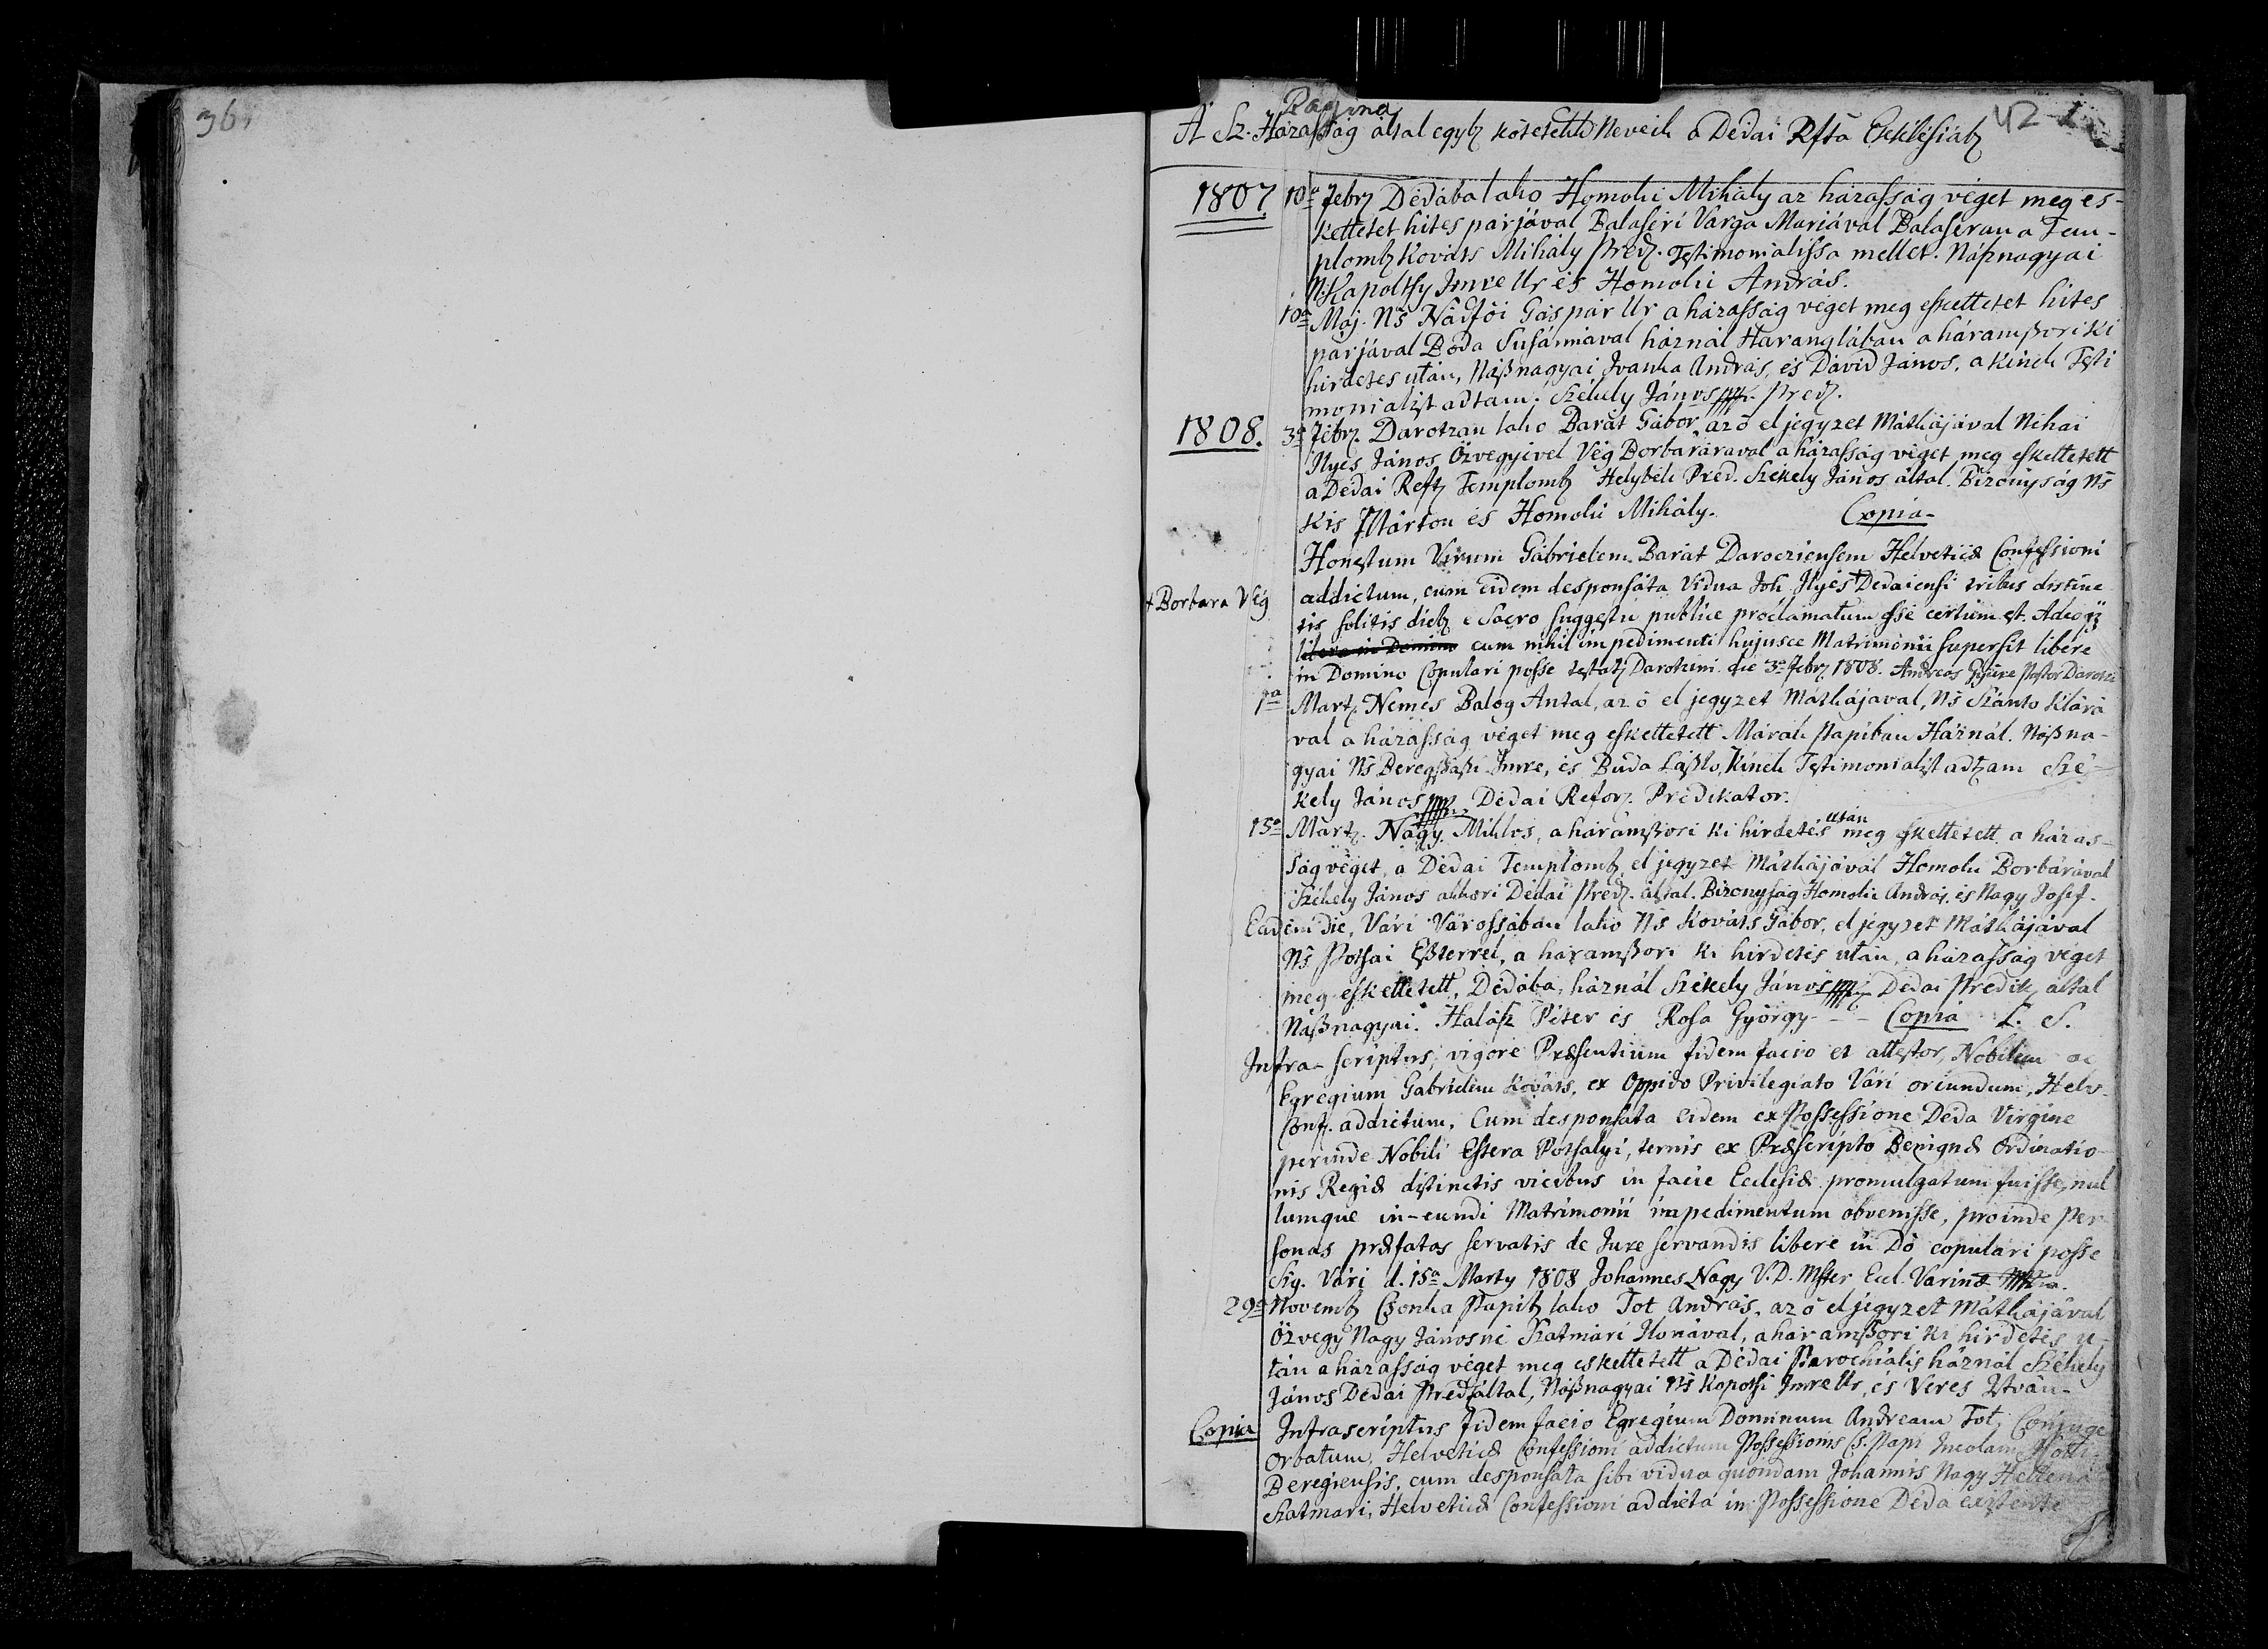 36
Pagina
42
A Sz. Házasság által egyb kötetettek Neveik a Dédai Rfta Ekklésiáb
1807. 10a Febr Dédába lako Homoki Mihály az házasság véget meg es-
kettetet hites párjával Balaséri Varga Mariával Balaséran a Tem-
plomb Kováts Mihály Préd. Testimonialissa mellet. Násznagyai
N. Kapoltsy Imre Ur és Homoki András.
10a Máj. Ns Nádfői Gáspár Ur a házasság véget meg eskettetet hites
párjával Boda Susánnával háznál Haranglában a háramszori ki
hirdetes után, Násznagyai Ivanka András, és David János, a kinek Testi
monialist adtam. Székely János mpk. Pred.
1808. 3a Febr. Darotzan lako Barát Gábor, az ő el jegyzet Mátkájával Néhai
Ilyés János Özvegyivel Vég Borbárával a házasság véget meg eskettetett
a Dédai Reft Templomb Helybéli Préd. Székely János által. Bizonyság Ns
Kis Márton és Homoki Mihály. Copia.
Honestum Virum Gabrielem Barát Darocziensem Helveticæ Confessioni
addictum, cum eidem desponsata Vidua Joh. Ilyés + Dédaiensi tribus distinc
+ Borbara Vég
tis solitis dieb e Sacro suggestu publice proclamatum esse certum est. Adeoq
libere in Domino cum nihil impedimenti hujusce Matrimonii supersit libere
in Domino Copulari posse testatz Darotzini die 3a Febr. 1808. Andreas Pastor Darotzi
1a Martz. Nemes Balog Antal, az ő el jegyzet Mátkájával, Ns Szánto Klárá
val a házasság véget meg eskettetett Márak Papiban Háznál. Nászna-
gyai Ns Beregszászi Imre, és Buda Lászlo, kinek Testimonialist adtam Szé-
kely János mpk. Dédai Refor. Prédikátor.
15a Martz. Nagy Miklos, a háramszori ki hirdetés után meg eskettetett a házas-
ság véget, a Dédai Templomb, el jegyzet Mátkájával Homoki Borbárával
Székely János akkori Dédai Préd. által. Bizonyság Homoki András, és Nagy Josef.
Eadem die, Vári Várossában lako Ns Kováts Gábor, el jegyzet Mátkájával
Ns Potsai Eszterrel, a háramszori ki hirdetés után, a házasság véget
meg eskettetett, Dédába, háznál Székely János mpk Dédai Prédik által
Násznagyai. Halász Péter és Rosa György - - - Copia L. S.
Infra scriptus, vigore Præsentium fidem facio et attestor, Nobilem ac
Egregium Gabrielem Kováts, ex Oppido Privilegiato Vári oriundum, Helv.
Conf. addictum, Cum desponsata eidem ex Possessione Déda Virgine
perinde Nobili Estera Potsalyi, ternis ex Præscripto Benignæ Ordinatio-
nis Regiæ distinctis vicibus in facie Ecclesiæ promulgatum fuisse, nul
lumque in-eundi Matrimonii impedimentum obvenisse, proinde Per-
sonas præfatas servatis de Jure servandis libere in Dō copulari posse
Sig. Vári d. 15a Marty 1808 Johannes Nagy V.D. Mster Eccl. Variensæ mpria.
29a Novemb Csonka Papib lako Tot András, az ő el jegyzet Mátkájával
Özvegy Nagy Jánosné Szatmári Ilonával, a háramszori ki hirdetés u-
tán a házasság véget meg eskettetett a Dédai Parochiális háznál Székely
János Dédai Préd által, Násznagyai Ns Kapotsi Imre Ur, és Veres István-
Copia Infrascriptus fidem facio Egregium Dominum Andream Tot, Conjuge
Orbatum, Helveticæ Confessioni addictum Possessionis Cs. Papi Incolam
Beregiensis, cum desponsata sibi vidua quondam Johannis Nagy Hellena
Szatmari, Helveticæ Confessioni addicta in Possessione Déda existente